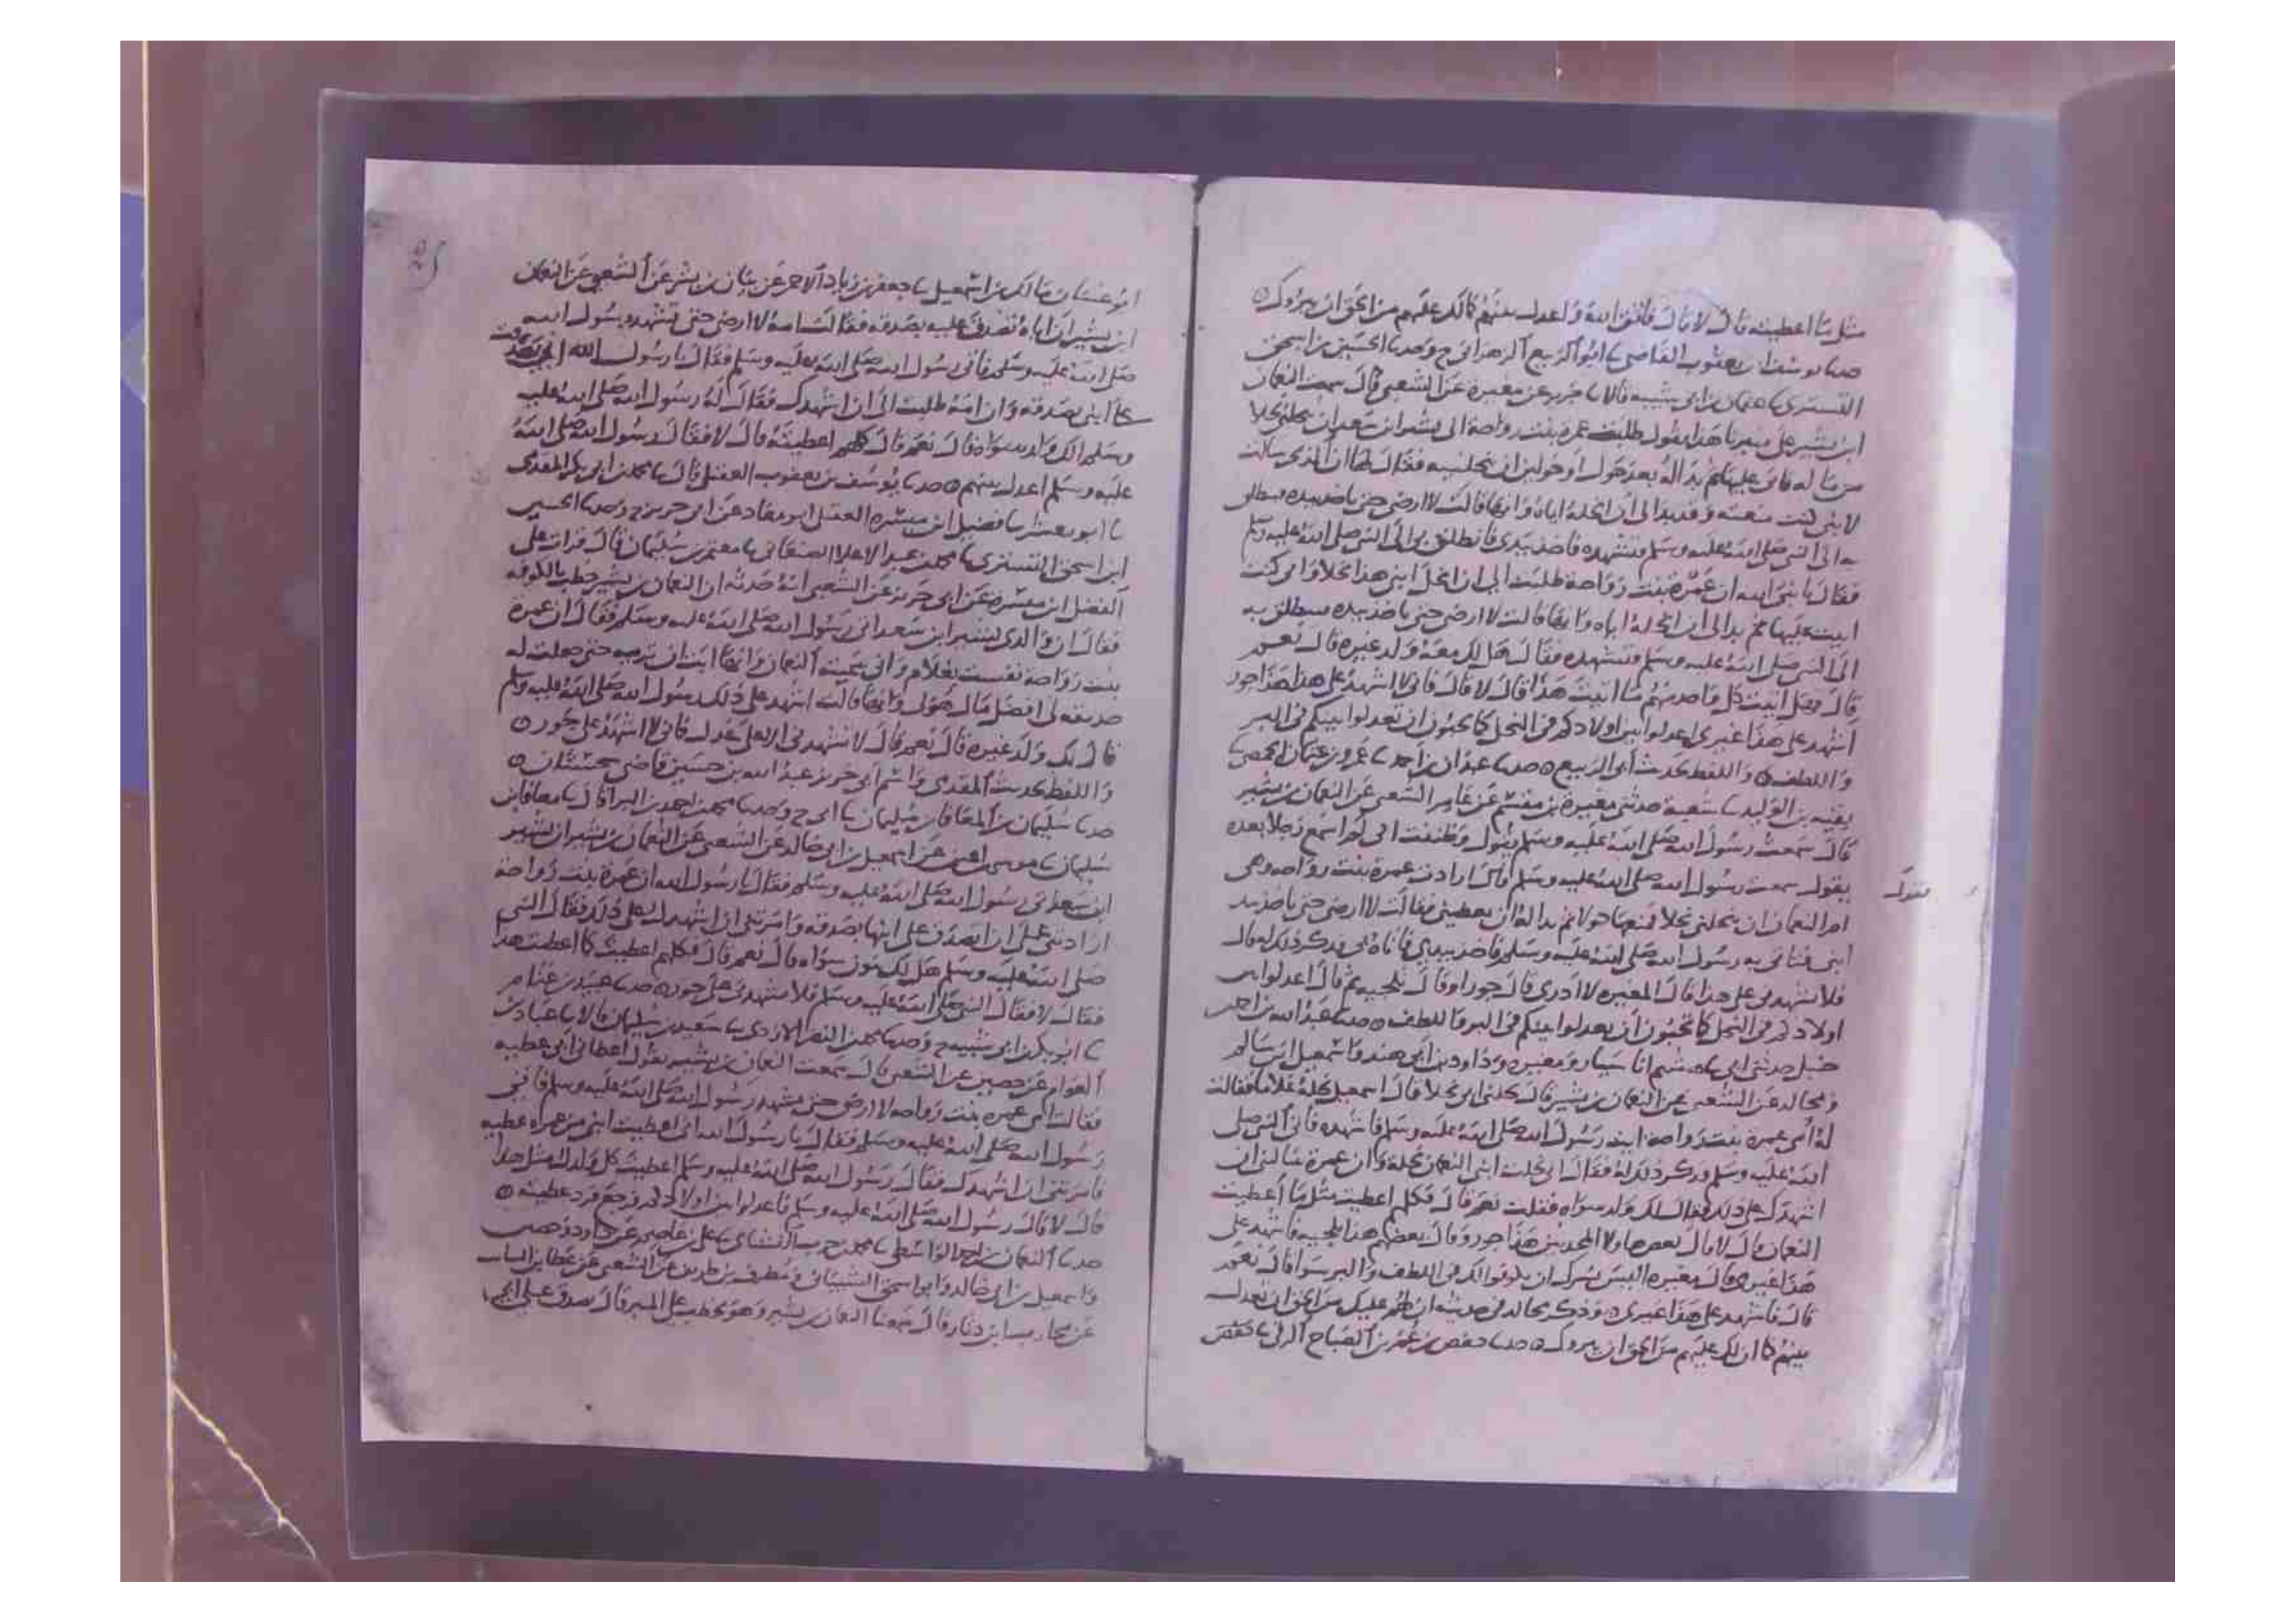 مثل ما اعطيته قال لا قال فاتق الله واعدل بينهم كما لك عليهم من الحق ان يبروك
حدثنا يوسف بن يعقوب القاضي ابو الربيع الزهراني ح وحدثنا الحسين بن اسحق
التستري عثمان بن ابي شيبة قالا جرير عن مغيرة عن الشعبي قال سمعت النعمان
ابن بشير على منبرنا هذا يقول طلبت عمرة بنت رواحة الى بشير ابن سعد ان ينحلني نحلا
من ماله فابى عليها ثم بدا له بعد حول او حولين ان ينحلنيه فقال لها ان الذي سالت
لابني كنت منعته وقد بدا لى ان انحله اياه وانها قالت لا ارضى حتى تاخذ بيده فتنطلق
به الى النبي صلى الله عليه وسلم فتشهده فاخذ بيدي فانطلق بي الى النبي صلى الله عليه وسلم
فقال يا نبي الله ان عمرة بنت رواحة طلبت الى ان انحل ابني هذا نحلا واني كنت
ابيت عليها ثم بدا لى ان انحله اياه وانها قالت لا ارضى حتى تاخذ بيده فتنطلق به
الى النبي صلى الله عليه وسلم فتشهده فقال هل لك معه ولد غيره قال نعم
قال فهل اتيت كل واحد منهم ما اتيت هذا قال لا قال فاني لا اشهد على هذا هذا جور
اشهد على هذا غيري اعدلوا بين اولادكم في النحل كما تحبون ان يعدلوا بينكم في البر
واللطف واللفظ لحديث ابي الربيع حدثنا عبدان بن احمد عمرو بن عثمان الحمصي
بقية بن الوليد شعبة حدثني مغيرة بن مقسم عن عامر الشعبي عن النعمان بن بشير
قال سمعت رسول الله صلى الله عليه وسلم يقول وظننت اني لا اسمع رجلا بعده
يقول سمعت رسول الله صلى الله عليه وسلم قال ارادت عمرة بنت رواحة وهي
يقول
ام النعمان ان ينحلني نحلا فمنعها حولا ثم بدا له ان يعطيني فقالت لا ارضى حتى تاخذ بيد
ابني فتاتي به رسول الله صلى الله عليه وسلم فاخذ بيدي فاتاه بي فذكر ذلك له قال
فلا تشهدني على هذا قال المغيرة لا ادري قال جورا وقال تلجيه ثم قال اعدلوا بين
اولادكم في النحل كما تحبون ان يعدلوا بينكم في البر واللطف حدثنا عبد الله بن احمد بن
حنبل حدثني ابي هشيم انا سيار ومغيرة وداود بن ابي هند واسمعيل ابن سالم
ومجالد عن الشعبي عن النعمان بن بشير قال نحلني ابي نحلا قال اسمعيل نحله غلاما فقالت
له امي عمرة بنت رواحة ايت رسول الله صلى الله عليه وسلم فاشهده فاتى النبي صلى
الله عليه وسلم فذكر ذلك له فقال اني نحلت ابني النعمان نحلة وان عمرة سالتني ان
اشهدك على ذلك فقال الك ولد سواه فقلت نعم قال فكلهم اعطيت مثل ما اعطيت
النعمان قال لا قال بعض هاولا المحدثين هذا جور وقال بعضهم هذا تلجية فاشهد على
هذا غيري قال مغيرة اليس يسرك ان يكونوا لك في اللطف والبر سوا قال نعم
قال فاشهد على هذا غيري وذكر مجالد في حديثه ان لهم عليك من الحق ان تعدل
بينهم كما ان لك عليهم من الحق ان يبروك حدثنا حفص بن عمر بن الصباح الرقي حفص
ابو غسان مالك بن اسمعيل جعفر بن زياد الاحمر عن بيان بن بشر عن الشعبي عن النعمان
ابن بشير ان اباه تصدق عليه بصدقة فقالت امه لا ارضى حتى تشهد رسول الله
صلى الله عليه وسلم فاتى رسول الله صلى الله عليه وسلم فقال يا رسول الله اني تصدقت
على ابني بصدقة وان امه طلبت الى ان اشهدك فقال له رسول الله صلى الله عليه
وسلم الك ولد سواه قال نعم قال كلهم اعطيته قال لا فقال رسول الله صلى الله
عليه وسلم اعدل بينهم حدثنا يوسف بن يعقوب قال محمد بن ابي بكر المقدمي
ابو معشر فضيل ابن ميسرة ابو معاذ عن ابي حريز ح وحدثنا الحسين
ابن اسحق التستري محمد بن عبد الاعلا الصنعاني معتمر بن سليمان قال قرات على
الفضيل ابن ميسرة عن ابي حريز عن الشعبي انه حدثه ان النعمان بن بشير خطب بالكوفة
فقال ان والدي بشير ابن سعد اتى رسول الله صلى الله عليه وسلم فقال ان عمرة
بنت رواحة نفست بغلام واني سميته النعمان وانها ابت ان تربيه حتى جعلت له
حديقة لى افضل مال هو لى وانها قالت اشهد على ذلك رسول الله صلى الله عليه وسلم
قال لك ولد غيره قال نعم قال لا تشهدني الا على عدل فاني لا اشهد على جور
واللفظ لحديث المقدمي واسم ابي حريز عبد الله بن حسين قاضي سجستان
حدثنا سليمان بن المعافا بن سليمان ابي ح وحدثنا محمد بن احمد بن البرا قال معافا بن
سليمان موسى بن اعين عن اسمعيل بن ابي خالد عن الشعبي عن النعمان بن بشير ان بشير
ابن سعد اتى رسول الله صلى الله عليه وسلم فقال يا رسول الله ان عمرة بنت رواحة
ارادتني على ان اتصدق على ابنها بصدقة وامرتني ان اشهدك على ذلك فقال النبي
صلى الله عليه وسلم هل لك بنون سواه قال نعم قال فكلهم اعطيت كما اعطيت هذا
فقال لا فقال النبي صلى الله عليه وسلم فلا تشهدني على جور حدثنا عبيد بن غنام
ابو بكر بن ابي شيبة ح وحدثنا محمد بن النضر الازدي سعيد بن سليمان قالا عباد بن
العوام عن حصين عن الشعبي قال سمعت النعمان بن بشير يقول اعطاني ابي عطية
فقالت امي عمرة بنت رواحة لا ارضى حتى تشهد رسول الله صلى الله عليه وسلم فاتى
رسول الله صلى الله عليه وسلم فقال يا رسول الله اني اعطيت ابني من عمرة عطية
فامرتني ان اشهدك فقال رسول الله صلى الله عليه وسلم اعطيت كل ولدك مثل هذا
قال لا قال رسول الله صلى الله عليه وسلم فاعدلوا بين اولادكم فرجع فرد عطيته
حدثنا النعمان بن احمد الواسطي محمد بن حرب النشائي علي بن عاصم عن داود وحصين
واسمعيل بن ابي خالد وابو اسحق الشيباني ومطرف بن طريف عن الشعبي وعن عطا بن السائب
عن محارب بن دثار قال سمعنا النعمان بن بشير وهو يخطب على المنبر قال تصدق على ابي